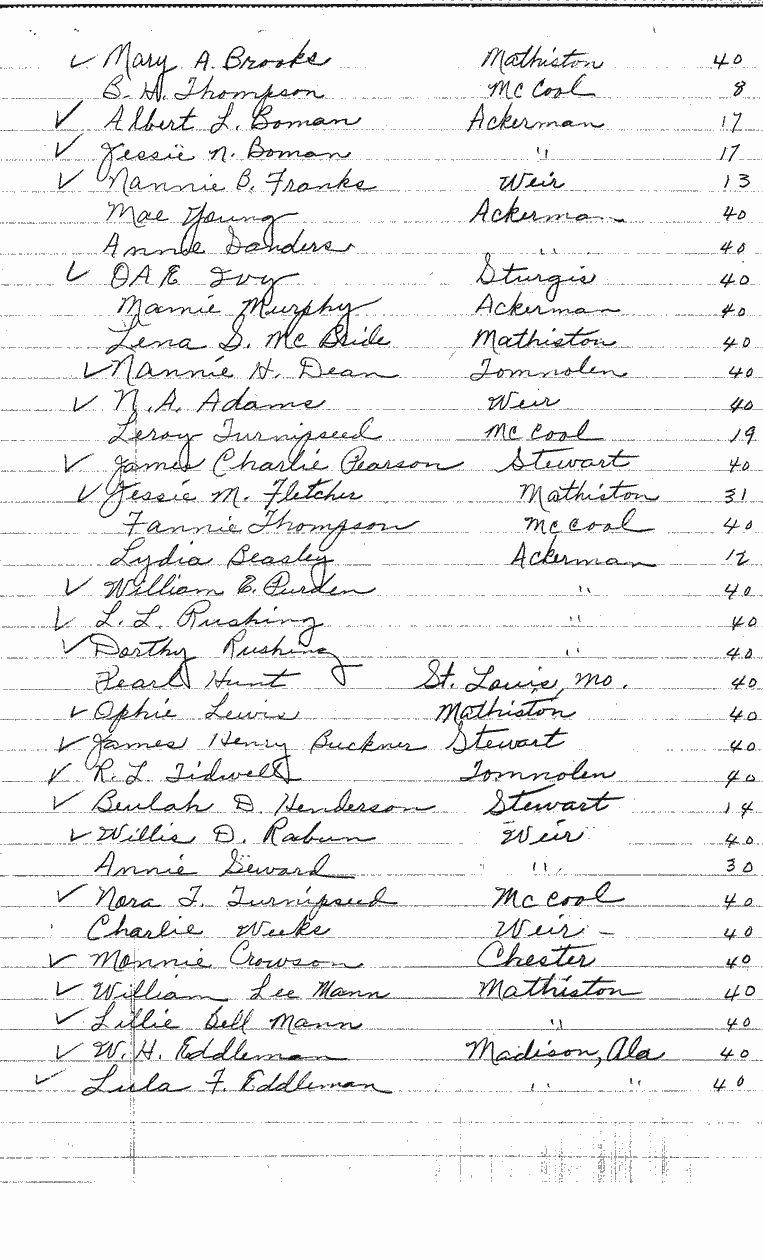 ✓ Mary A. Brooks Mathiston 40
B. H. Thompson McCool 8
✓ Albert L. Boman Ackerman 17
✓ Jessie N. Boman " 17
✓ Nannie B. Franks Weir 13
Mae Young Ackerman 40
Annie Sanders " 40
✓ O A E Ivy Sturgis 40
Mamie Murphy Ackerman 40
Lena S. McBride Mathiston 40
✓ Nannie H. Dean Tomnolen 40
✓ N. A. Adams Weir 40
Leroy Turnipseed McCool 19
✓ James Charlie Pearson Stewart 40
✓ Jessie M. Fletcher Mathiston 31
Fannie Thompson McCool 40
Lydia Beasley Ackerman 12
✓ William E. Purden " 40
✓ L. L. Rushing " 40
✓ Dorthy Rushing " 40
Pearl Hunt St. Louis, Mo. 40
✓ Ophie Lewis Mathiston 40
✓ James Henry Buckner Stewart 40
✓ R. L. Tidwell Tomnolen 40
✓ Beulah D. Henderson Stewart 14
✓ Willis D. Rabun Weir 40
Annie Seward " 30
✓ Nora T. Turnipseed McCool 40
Charlie Weeks Weir - 40
✓ Monnie Crowson Chester 40
✓ William Lee Mann Mathiston 40
✓ Lillie Bell Mann " 40
✓ W. H. Eddleman Madison, Ala 40
✓ Lula F. Eddleman " " 40